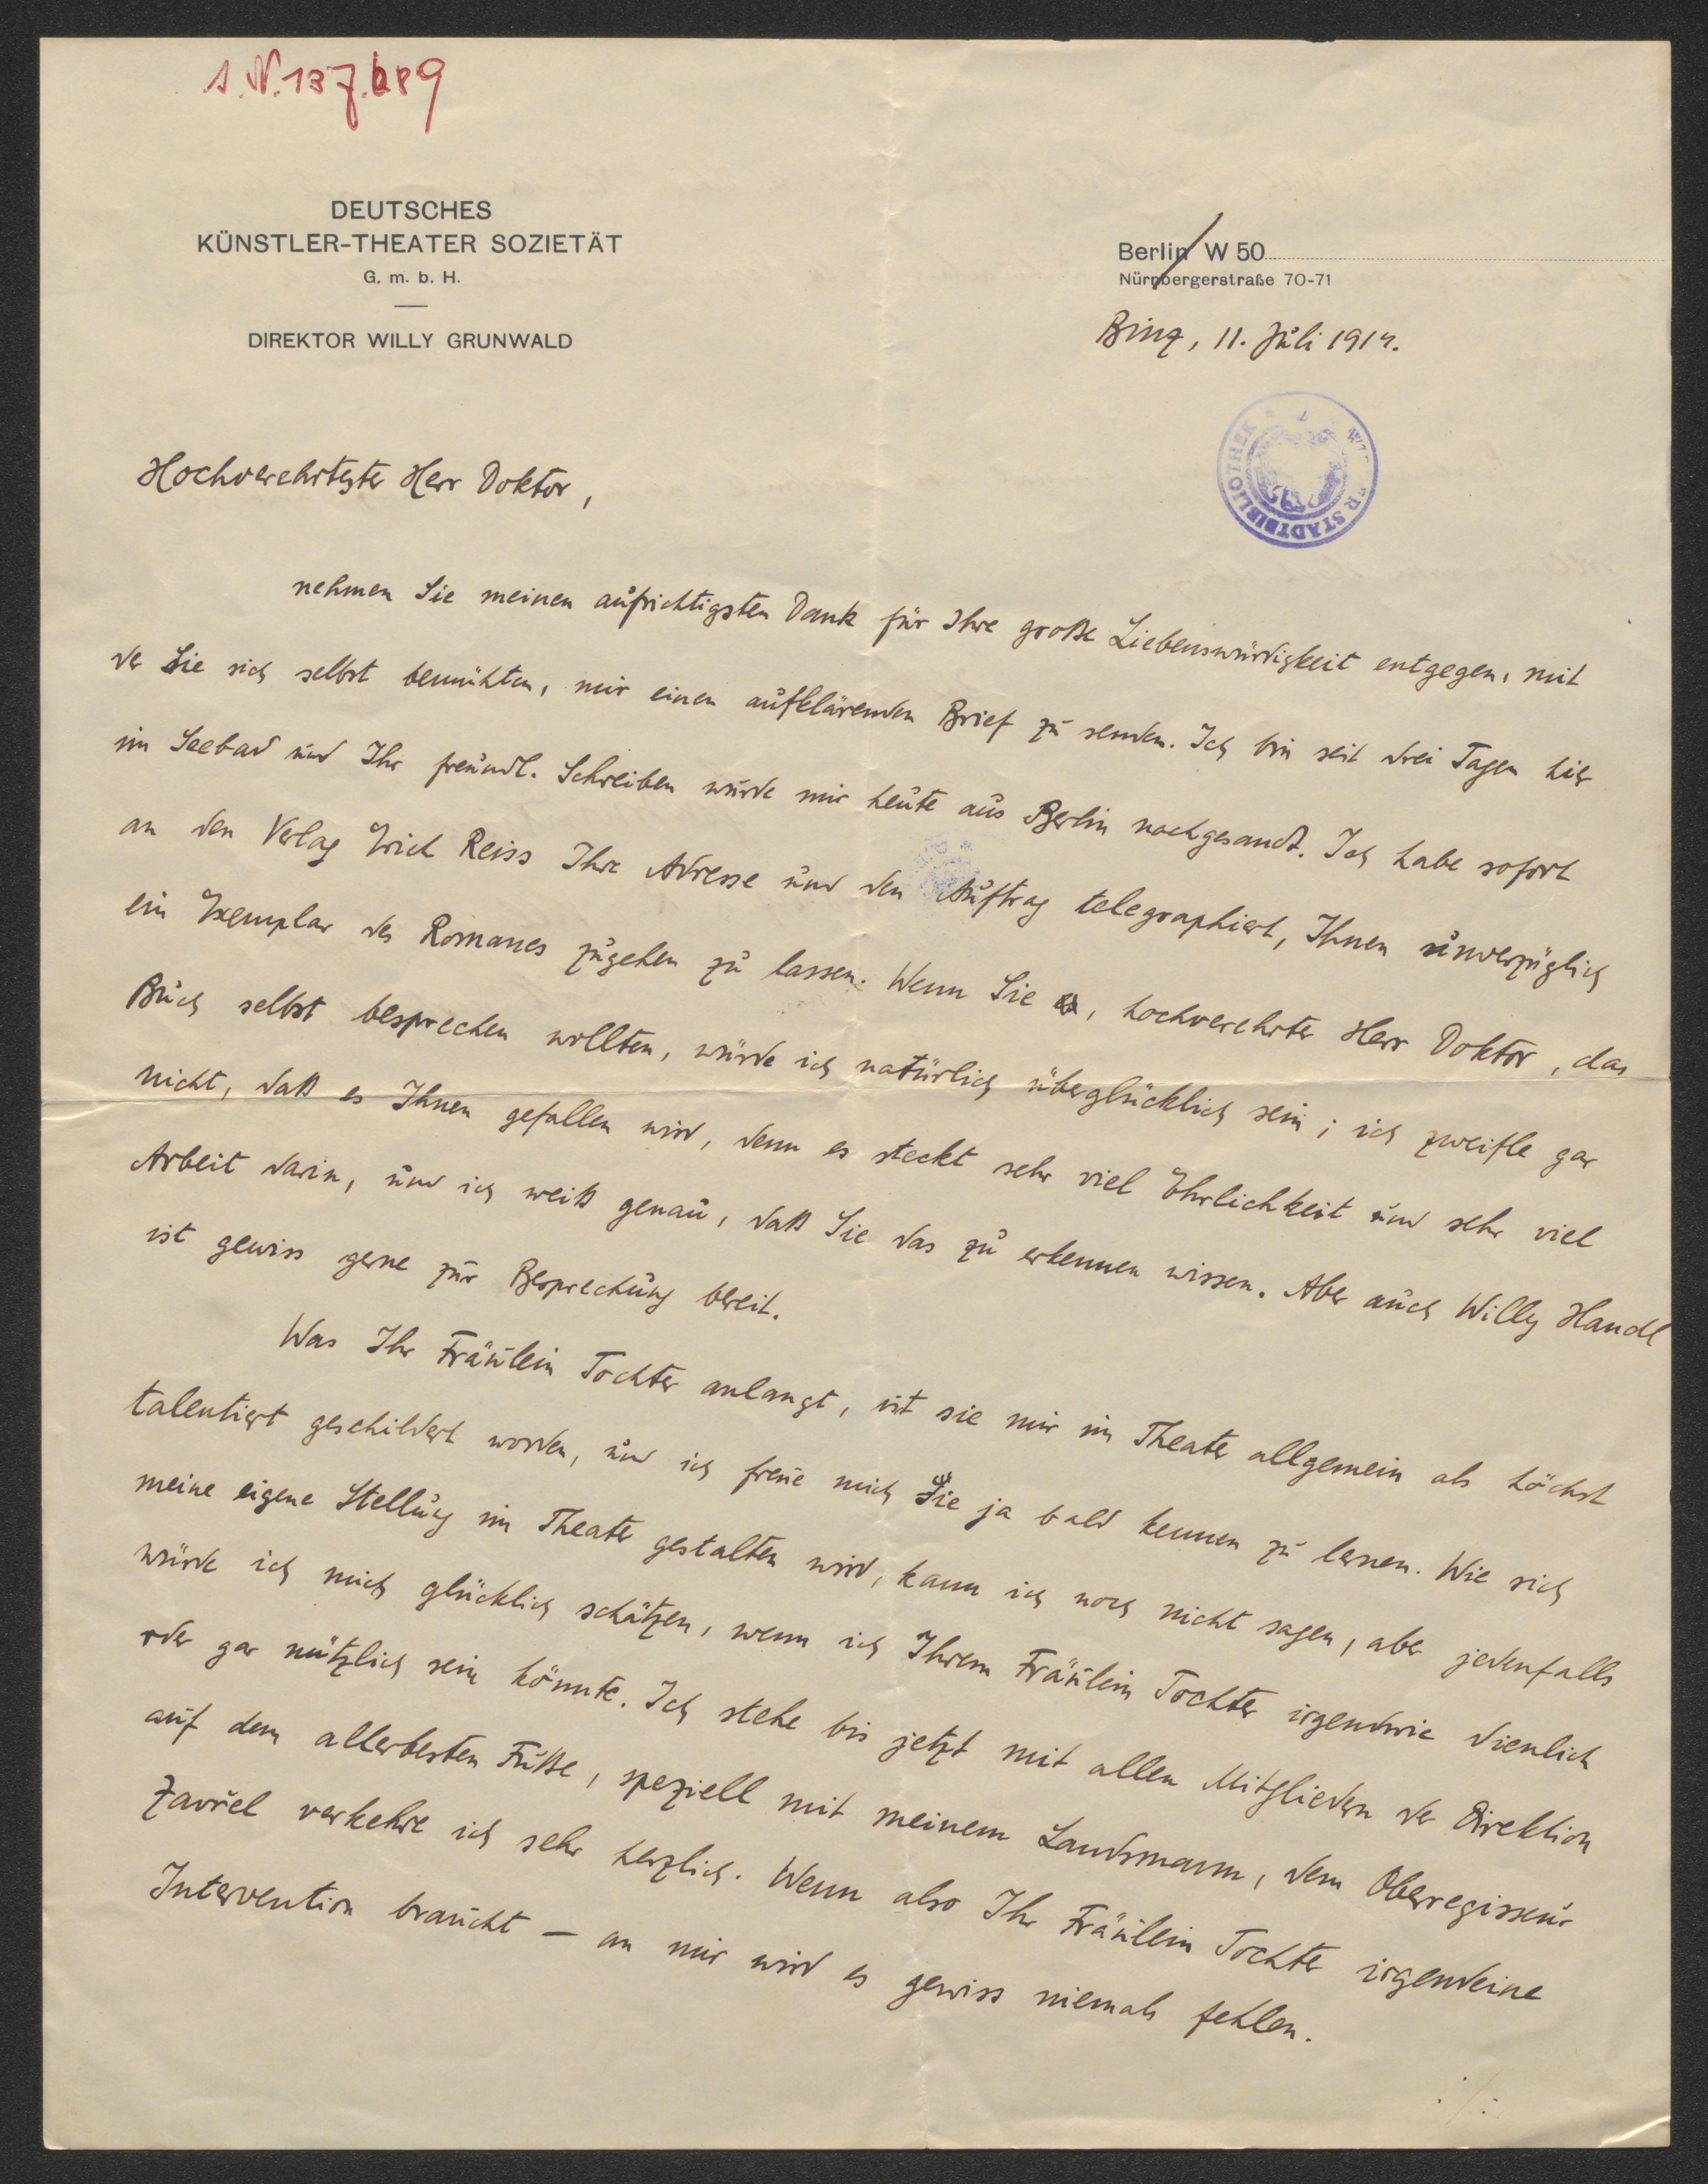 I.N. 137.689
DEUTSCHES
KÜNSTLER-THEATER SOZIETÄT
G. m. b. H.
DIREKTOR WILLY GRUNWALD
Berlin W 50
Nürnbergerstraße 70-71
Binz, 11. Juli 1914.
STADTBIBLIOTHEK
Hochverehrtester Herr Doktor,
nehmen Sie meinen aufrichtigsten Dank für Ihre große Liebenswürdigkeit entgegen, mit
der Sie sich selbst bemühten, mir einen aufklärenden Brief zu senden. Ich bin seit drei Tagen hier
im Seebad und Ihr freundl. Schreiben wurde mir heute aus Berlin nachgesandt. Ich habe sofort
an den Verlag Erich Reiss Ihre Adresse und den Auftrag telegraphiert, Ihnen unverzüglich
ein Exemplar des Romanes zugehen zu lassen. Wenn Sie, hochverehrter Herr Doktor, das
Buch selbst besprechen wollten, würde ich natürlich überglücklich sein; ich zweifle gar
nicht, daß es Ihnen gefallen wird, denn es steckt sehr viel Ehrlichkeit und sehr viel
Arbeit darin, und ich weiß genau, daß Sie das zu erkennen wissen. Aber auch Willy Handl
ist gewiss gerne zur Besprechung bereit.
Was Ihr Fräulein Tochter anlangt, ist sie mir im Theater allgemein als höchst
talentiert geschildert worden, und ich freue mich sie ja bald kennen zu lernen. Wie sich
meine eigene Stellung im Theater gestalten wird, kann ich noch nicht sagen, aber jedenfalls
würde ich mich glücklich schätzen, wenn ich Ihrem Fräulein Tochter irgendwie dienlich
oder gar nützlich sein könnte. Ich stehe bis jetzt mit allen Mitgliedern der Direktion
auf dem allerbesten Fuße, speziell mit meinem Landsmann, dem Oberregisseur
Zavřel verkehre ich sehr herzlich. Wenn also Ihr Fräulein Tochter irgendeine
Intervention braucht – an mir wird es gewiss niemals fehlen.
./.